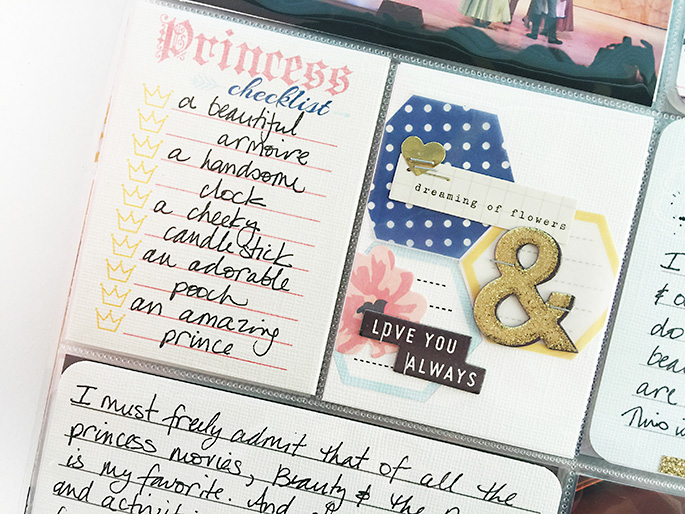 Princess
checklist
a beautiful
armoire
a handsome
clock
a cheeky
candlestick
an adorable
pooch
an amazing
prince
dreaming of flowers
&
LOVE YOU
ALWAYS
I must freely admit that of all the
princess movies, Beauty & the
is my favorite. And
and activit
I
& a
do
bea
are
This i